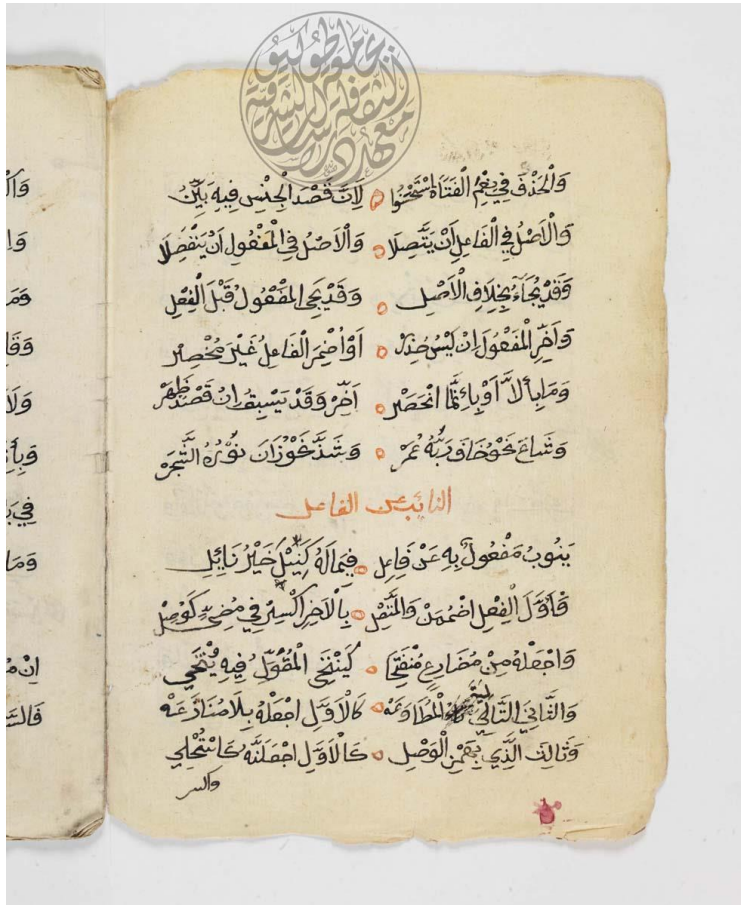 معهد الثقافة والدراسات الشرقية
وَالْحَذْفَ فِي نِعْمَ الْفَتَاةُ اسْتَحْسَنُوا لِأَنَّ قَصْدَ الْجِنْسِ فِيهِ بَيِّنُ
وَالْأَصْلُ فِي الْفَاعِلِ أَنْ يَتَّصِلَا وَالْأَصْلُ فِي الْمَفْعُولِ أَنْ يَنْفَصِلَا
وَقَدْ يُجَاءُ بِخِلَافِ الْأَصْلِ وَقَدْ يَجِي الْمَفْعُولُ قَبْلَ الْفِعْلِ
وَأَخِّرِ الْمَفْعُولَ إِنْ لَبْسٌ حُذِرْ أَوْ أُضْمِرَ الْفَاعِلُ غَيْرَ مُنْحَصِرْ
وَمَا بِإِلَّا أَوْ بِإِنَّمَا انْحَصَرْ أَخِّرْ وَقَدْ يَسْبِقُ إِنْ قَصْدٌ ظَهَرْ
وَشَاعَ نَحْوُ خَافَ رَبَّهُ عُمَرْ وَشَذَّ نَحْوُ زَانَ نَوْرُهُ الشَّجَرْ
النائب عن الفاعل
يَنُوبُ مَفْعُولٌ بِهِ عَنْ فَاعِلِ فِيمَا لَهُ كَنِيلَ خَيْرُ نَائِلِ
فَأَوَّلَ الْفِعْلِ اضْمُمَنْ وَالْمُتَّصِلْ بِالْآخِرِ اكْسِرْ فِي مُضِيٍّ كَوُصِلْ
وَاجْعَلْهُ مِنْ مُضَارِعٍ مُنْفَتِحَا كَيَنْتَحِي الْمَقُولُ فِيهِ يُنْتَحَى
وَالثَّانِيَ التَّالِيَ تَا الْمُطَاوَعَهْ كَالْأَوَّلِ اجْعَلْهُ بِلَا مُنَازَعَهْ
وَثَالِثَ الَّذِي بِهَمْزِ الْوَصْلِ كَالْأَوَّلِ اجْعَلَنَّهُ كَاسْتُحْلِي
واكسر